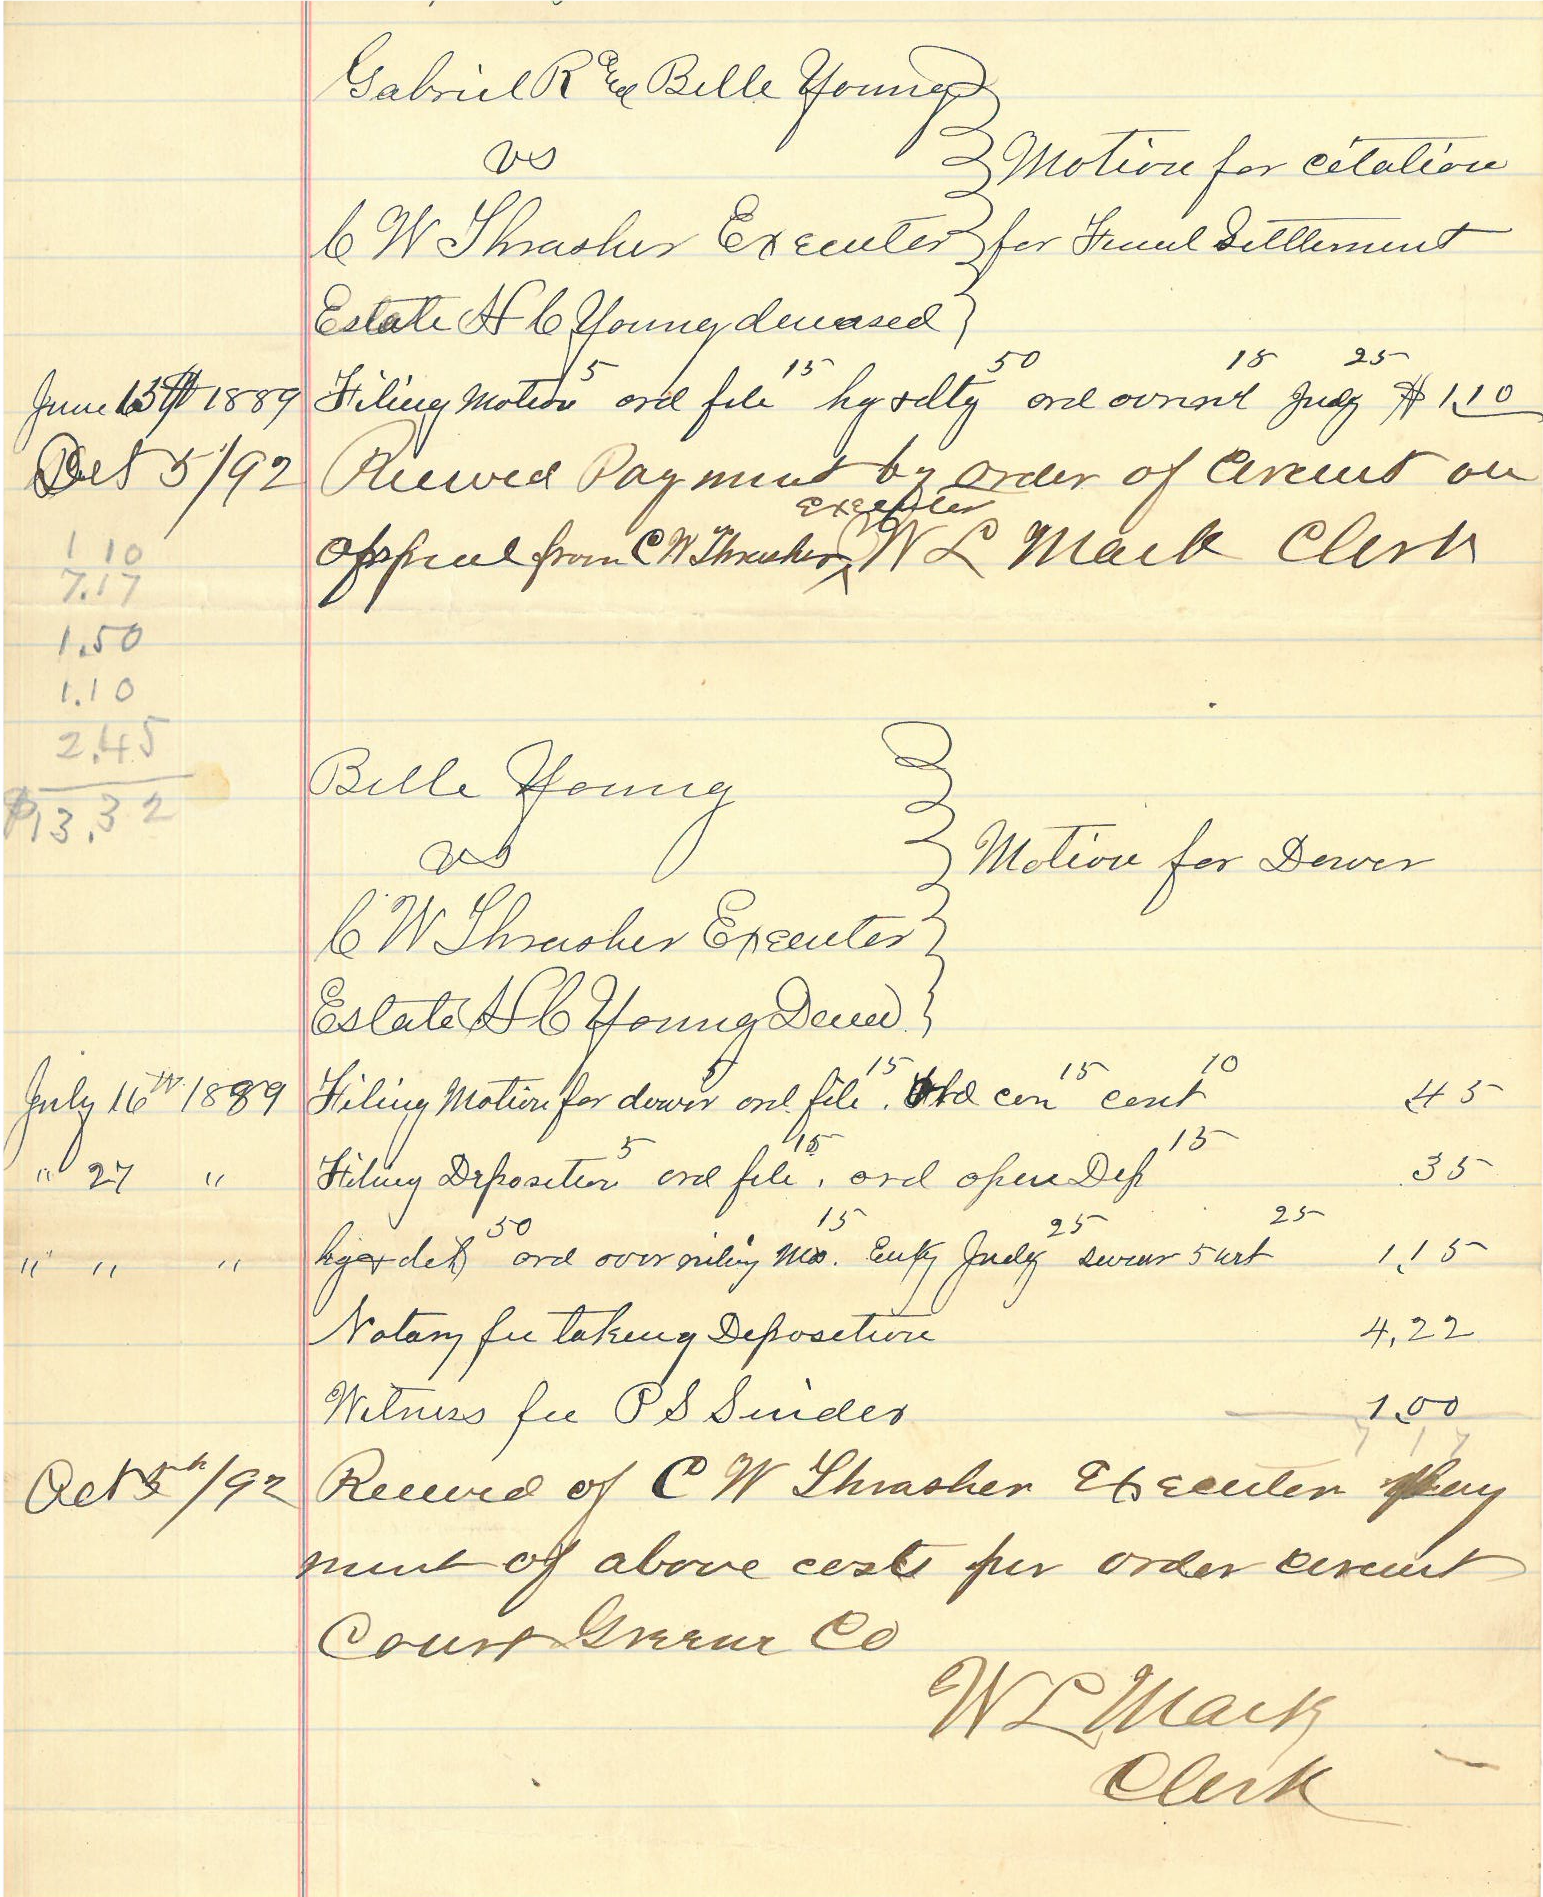 Gabriel R & Belle Young
vs
Motion for citation
C W Thrasher Executer for Final Settlement
Estate H C Young deceased
5 15 50 15 25
June 13th 1889 Filing Motion ord file hg & dty ord overrul Judg $1.10
Oct 5/92 Received Payment by order of Circuit on
Executer
Appeal from C W Thrasher W L Mack Clerk
1 10
7.17
1.50
1.10
2.45
$13.32
Belle Young
vs
Motion for Dower
C W Thrasher Executer
Estate H C Young Decd
5 15 15 10
July 16th 1889 Filing Motion for dower ord file. Ord con cont 45
5 15 15
" 27 " Filing Deposition ord file. ord open Dep 35
50 15 25 25
" " " hg & det ord overruling Mo. Entg Judg swear 5 wit 1.15
Notary fee taking Deposition 4.22
Witness fee P S 1.00
7 17
Oct 5th/92 Received of C W Thrasher Executer pay
ment of above costs per order circuit
Court Greene Co
W L Mack
Clerk